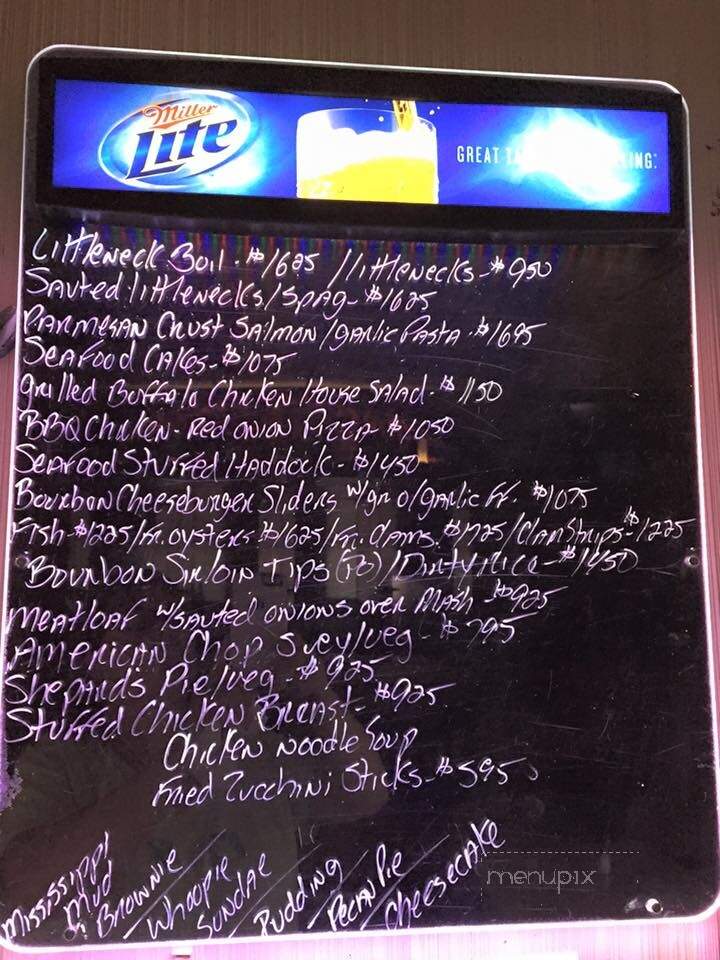 Miller
Lite
GREAT TA ING:
Littleneck Boil - $1695 / littlenecks - $950
Sauted littlenecks / Spag - $1625
Parmesan Crust Salmon / garlic Pasta - $1695
Seafood Cakes - $1075
grilled Buffalo Chicken House Salad - $1150
BBQ Chicken - Red onion Pizza $1050
Seafood Stuffed Haddock - $1450
Bourbon Cheeseburger Sliders w/ gr o/garlic ff. $1075
Fish - $1225 / Fr. oysters $1625 / Fr. Clams $1725 / Clam Strips - $1225
Bourbon Sirloin Tips / Dirty Rice - $1450
Meatloaf w/sauted onions over Mash - $925
American Chop Suey/veg - $795
Shepards Pie/veg - $925
Stuffed Chicken Breast - $925
Chicken noodle Soup
Fried Zucchini Sticks - $595
Mississippi Mud / Brownie / Whoopie Sundae / Pudding / Pecan Pie / Cheesecake
menupix